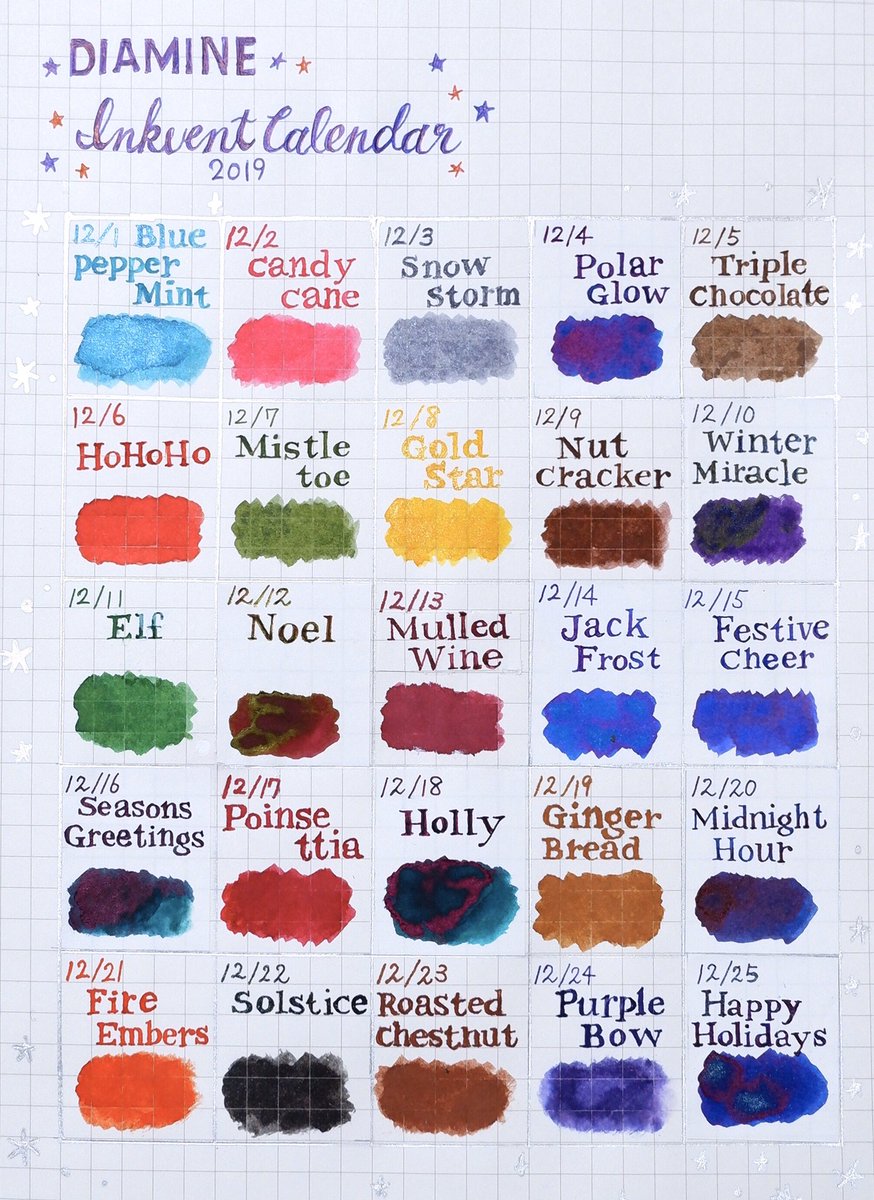 DIAMINE
Inkvent Calendar
2019
12/1 Blue
pepper
Mint
12/2
candy
cane
12/3
Snow
Storm
12/4
Polar
Glow
12/5
Triple
Chocolate
12/6
HoHoHo
12/7
Mistle
toe
12/8
Gold
Star
12/9
Nut
cracker
12/10
Winter
Miracle
12/11
Elf
12/12
Noel
12/13
Mulled
Wine
12/14
Jack
Frost
12/15
Festive
Cheer
12/16
Seasons
Greetings
12/17
Poinse
ttia
12/18
Holly
12/19
Ginger
Bread
12/20
Midnight
Hour
12/21
Fire
Embers
12/22
Solstice
12/23
Roasted
chestnut
12/24
Purple
Bow
12/25
Happy
Holidays